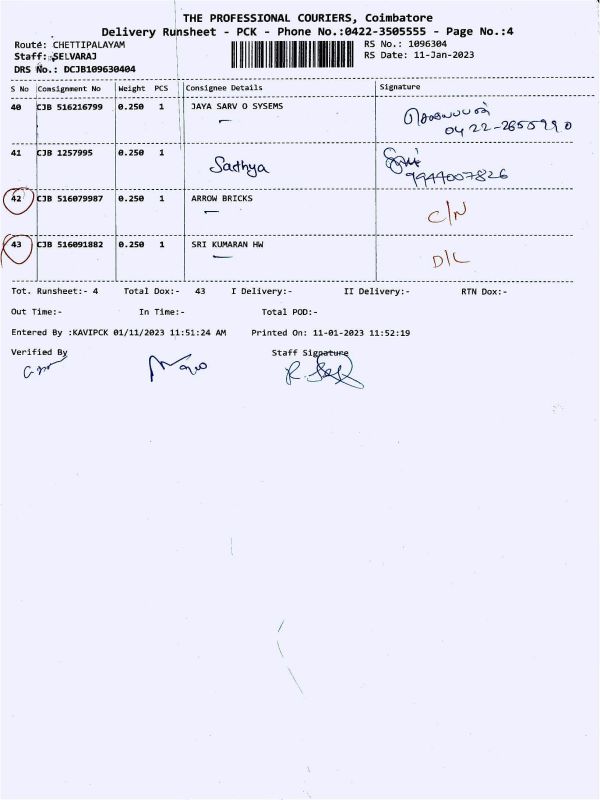 THE PROFESSIONAL COURIERS, Coimbatore
Delivery Runsheet - PCK - Phone No.:0422-3505555 - Page No.:4
Route: CHETTIPALAYAM RS No.: 1096304
Staff: SELVARAJ RS Date: 11-Jan-2023
DRS No.: DCJB109630404
S No Consignment No Weight PCS Consignee Details Signature
40 CJB 516216799 0.250 1 JAYA SARV O SYSEMS
0422-2655990
41 CJB 1257995 0.250 1
Sathya
9944007826
42 CJB 516079987 0.250 1 ARROW BRICKS
C/N
43 CJB 516091882 0.250 1 SRI KUMARAN HW
D/L
Tot. Runsheet:- 4 Total Dox:- 43 I Delivery:- II Delivery:- RTN Dox:-
Out Time:- In Time:- Total POD:-
Entered By :KAVIPCK 01/11/2023 11:51:24 AM Printed On: 11-01-2023 11:52:19
Verified By Staff Signature